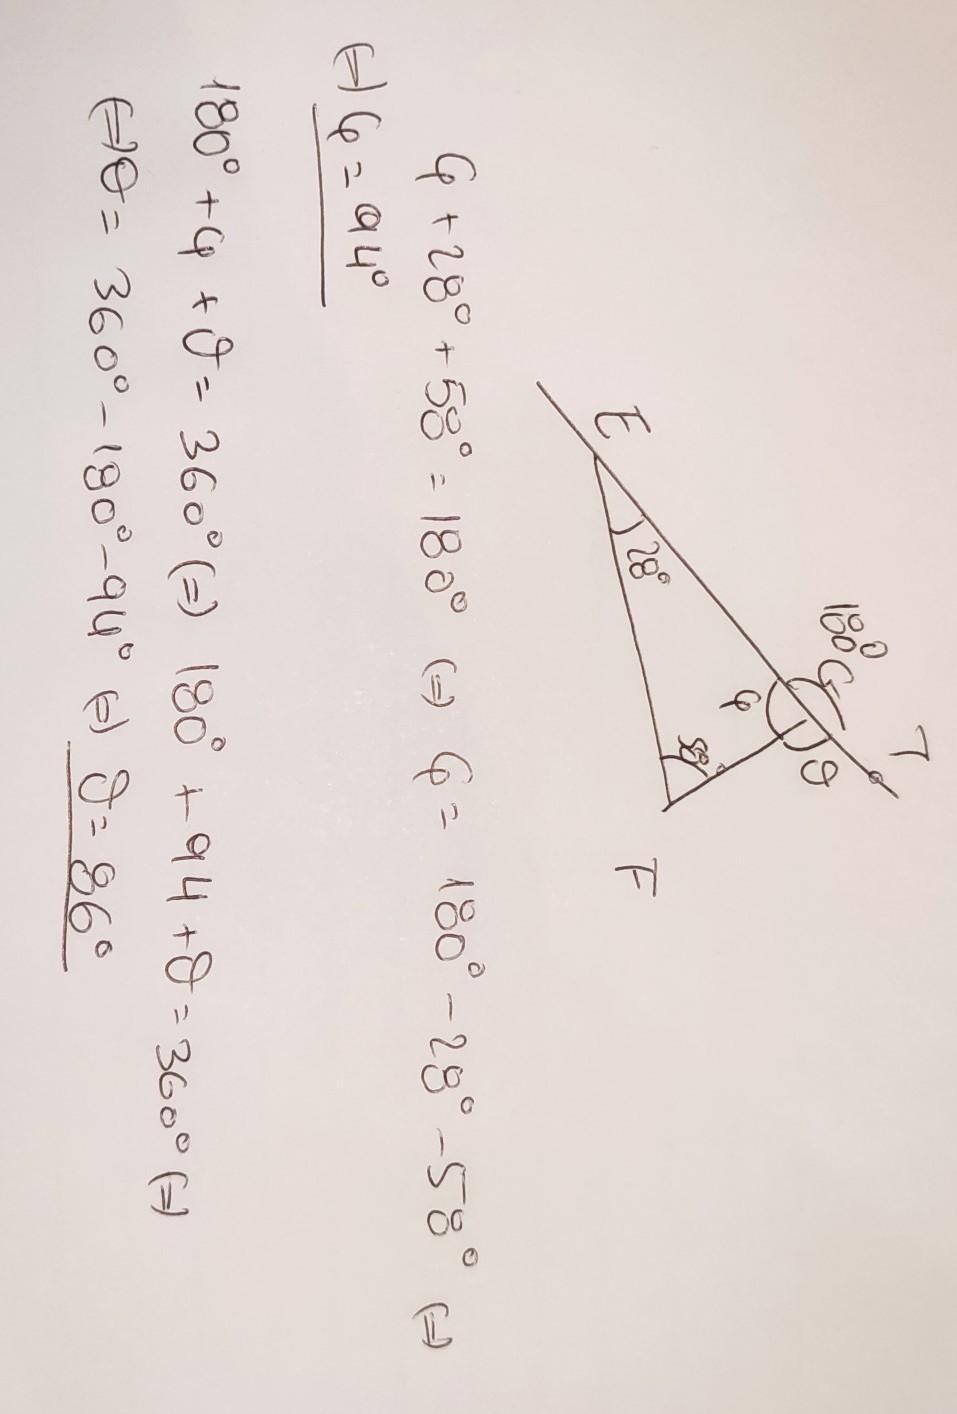 T
180° G
θ
φ
E
28°
58°
F
φ + 28° + 58° = 180° (=) φ = 180° - 28° - 58° (=)
(=) φ = 94°
180° + φ + θ = 360° (=) 180° + 94 + θ = 360° (=)
(=) θ = 360° - 180° - 94° (=) θ = 86°